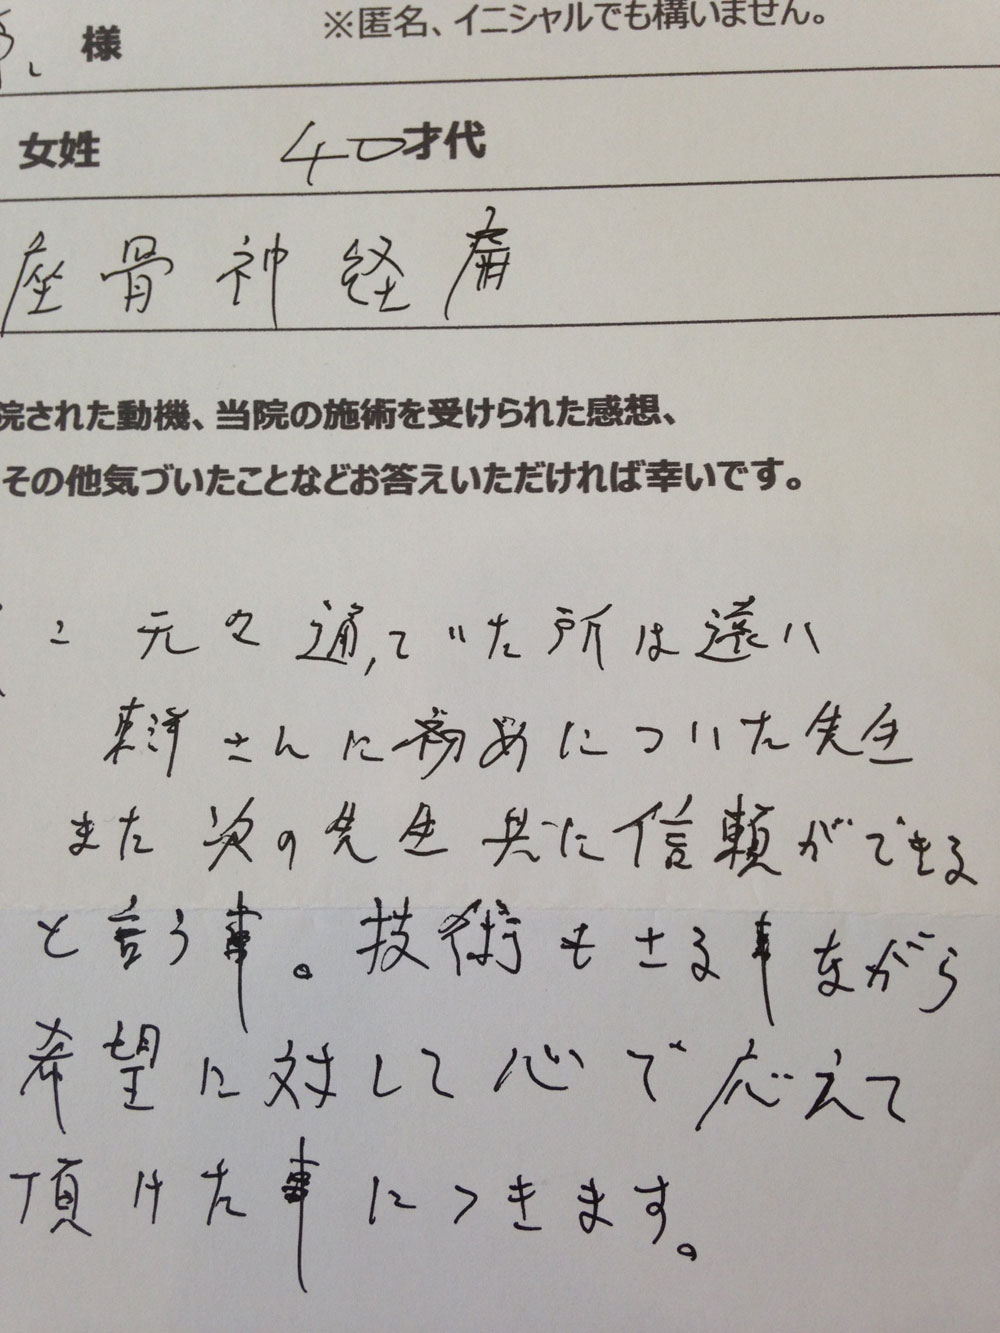 様 ※匿名、イニシャルでも構いません。
女姓 40才代
座骨神経痛
院された動機、当院の施術を受けられた感想、
その他気づいたことなどお答えいただければ幸いです。
元々通っていた所は遠い
さんに初めについた先生
また次の先生共に信頼ができる
と言う事。技術もさる事ながら
希望に対して心で応えて
頂けた事につきます。